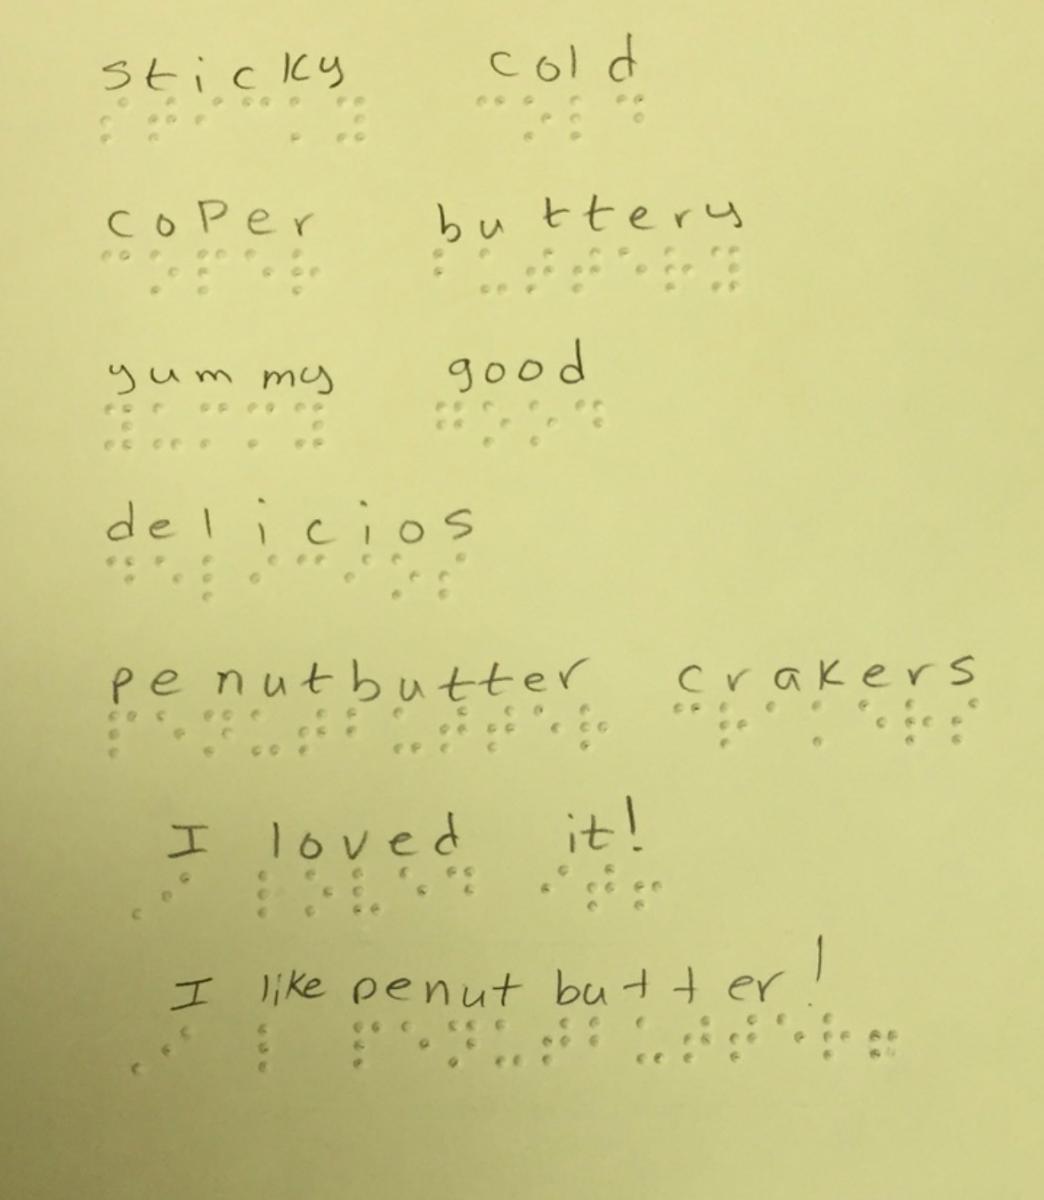 sticky cold
coper buttery
yummy good
delicios
penutbutter crakers
I loved it!
I like penut butter!